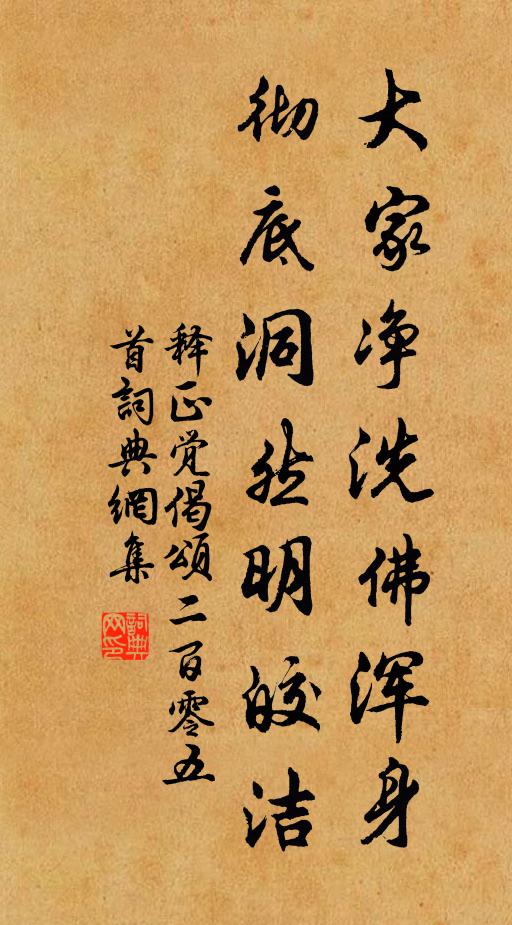 大家净洗佛浑身
彻底洞然明皎洁
释正觉偈颂二百零五
首詞典網集
詞典网印